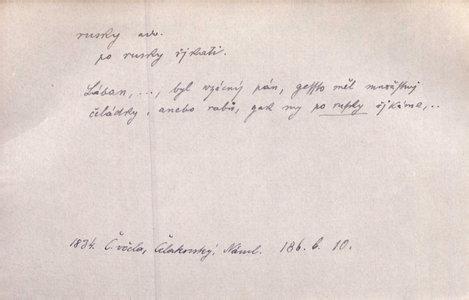 rusky adv.
po rusky říkati.
Lában, ..., byl vzácný pán, gessto měl množstwj
čeládky, anebo rabů, gak my po rusky řjkáme,..
1834. Č. včela, Čelakovský, Náml. 136. b. 10.